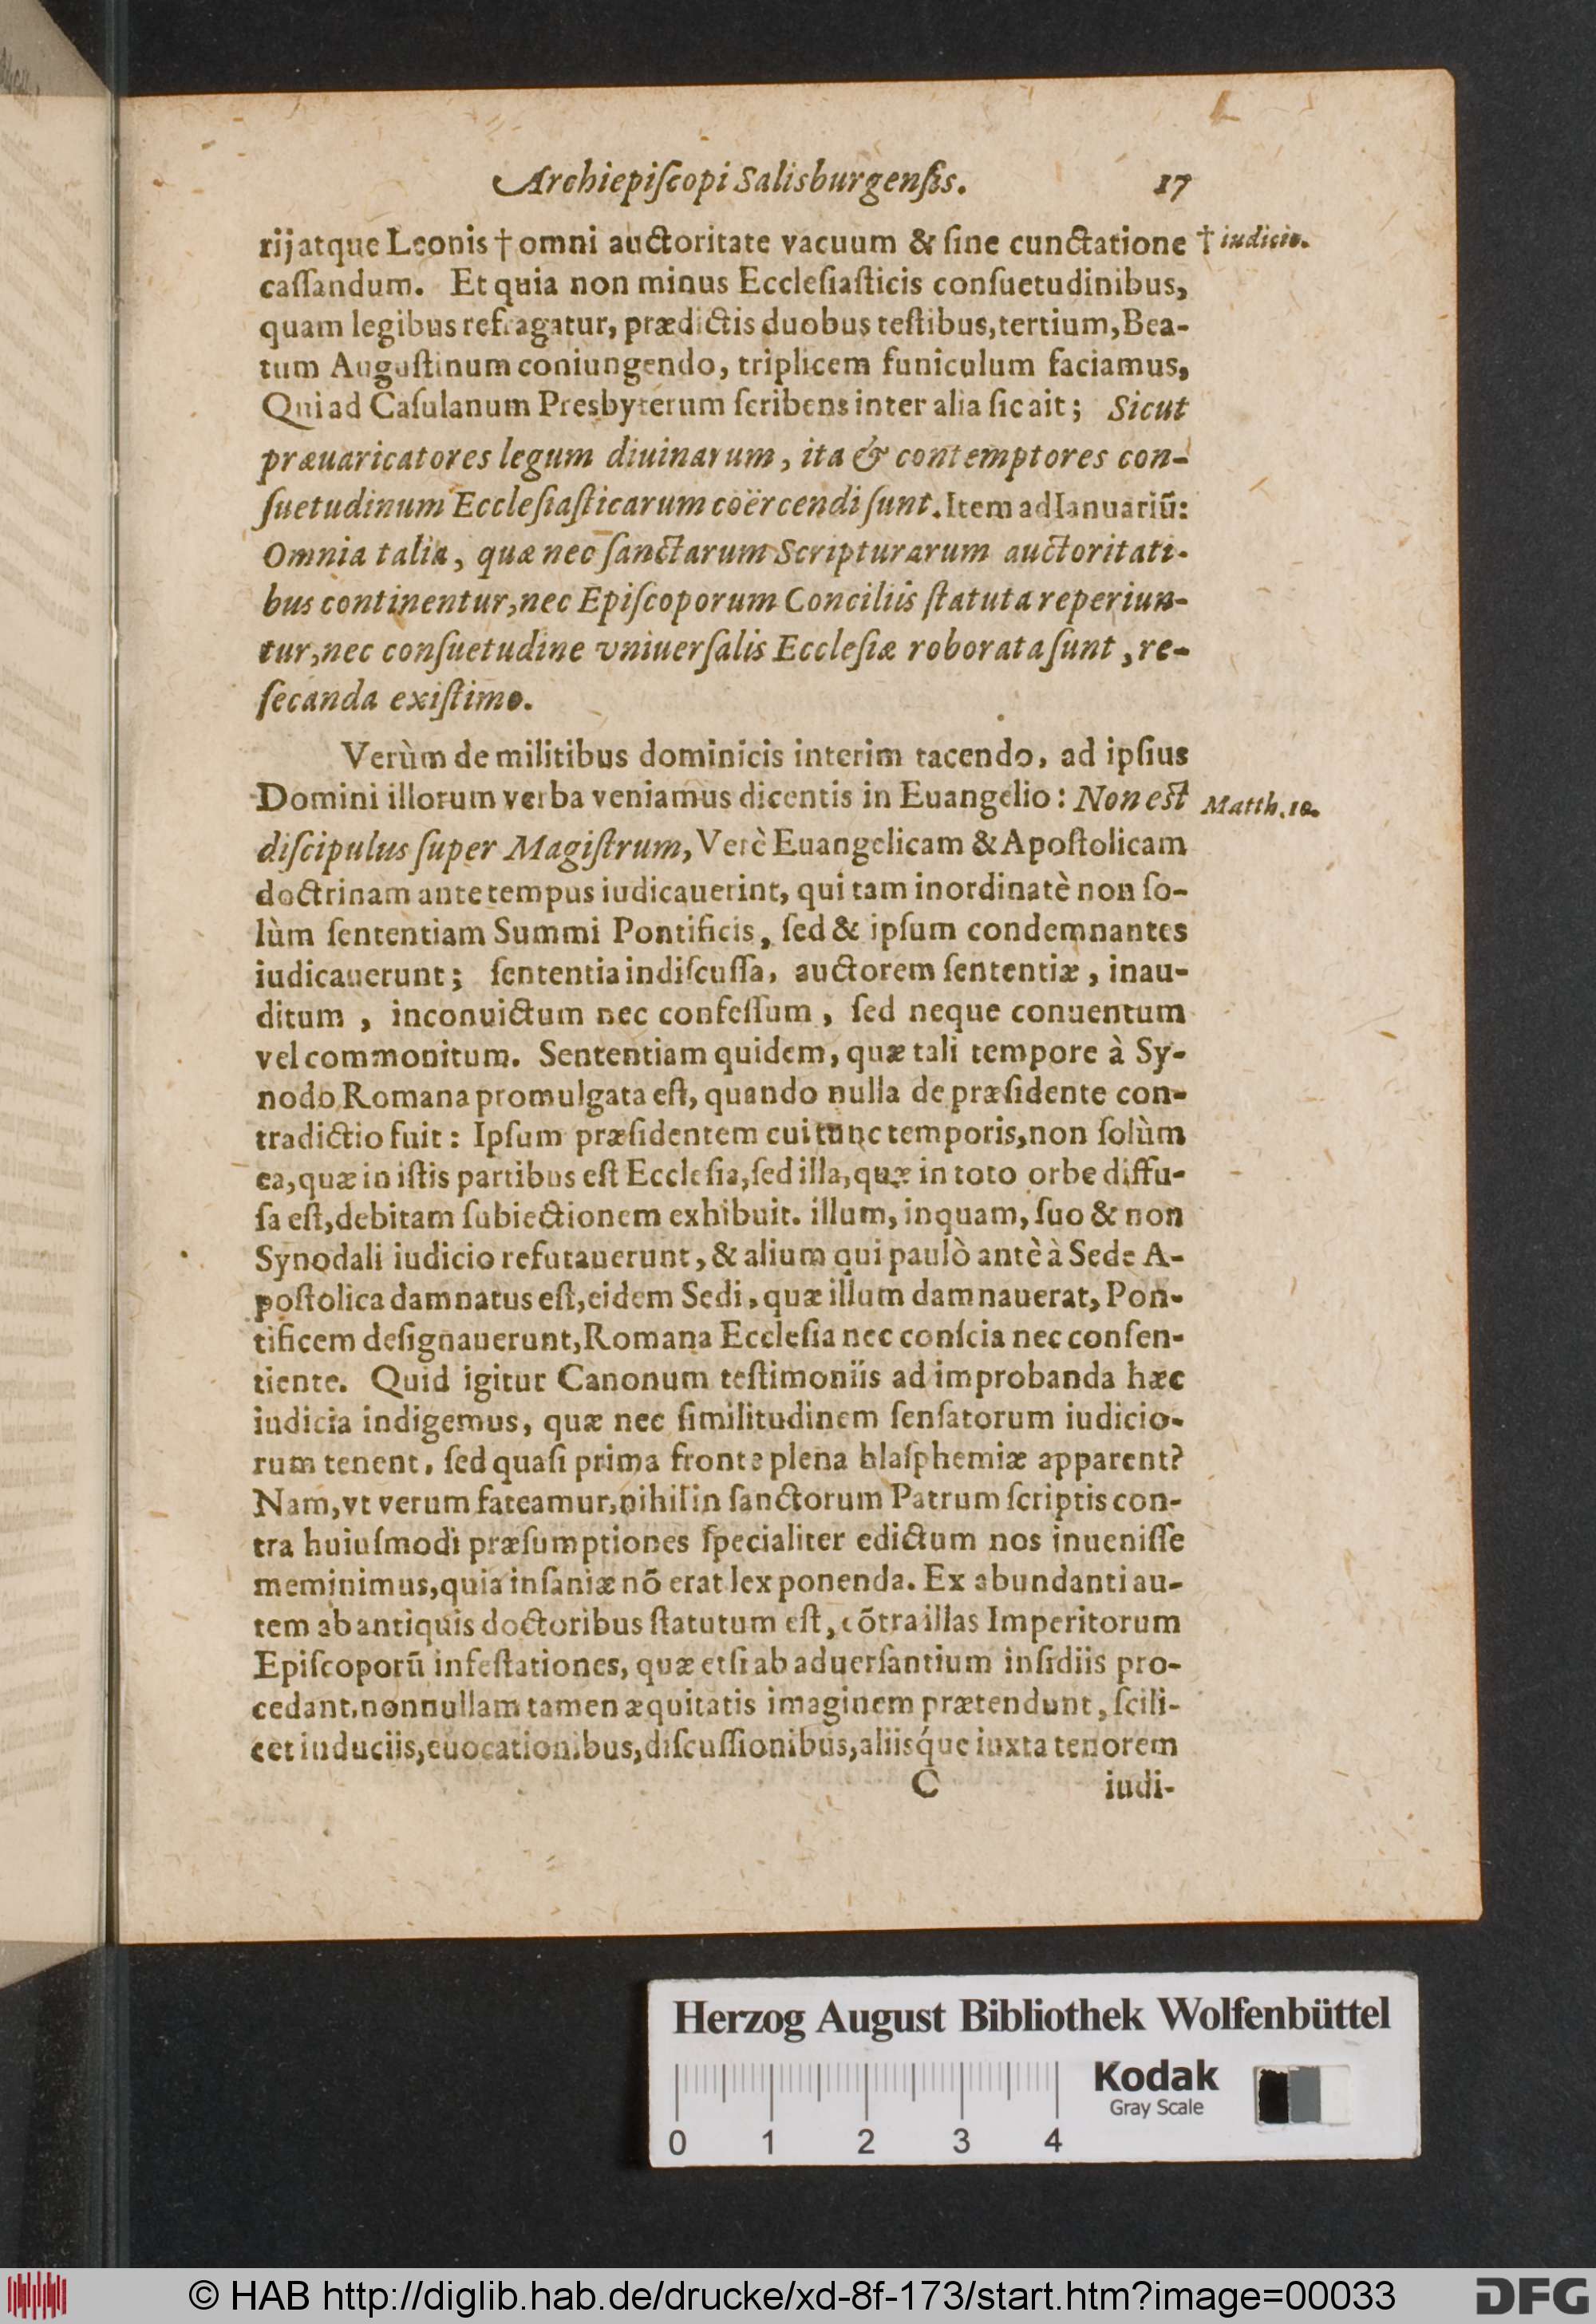 Archiepiſcopi Salisburgenſis. 17
rij atque Leonis † omni auctoritate vacuum & ſine cunctatione † iudicio.
caſſandum. Et quia non minus Eccleſiaſticis conſuetudinibus,
quam legibus refragatur, prædictis duobus teſtibus, tertium, Bea-
tum Auguſtinum coniungendo, triplicem funiculum faciamus,
Qui ad Caſulanum Presbyterum ſcribens inter alia ſic ait; Sicut
præuaricatores legum diuinarum, ita & contemptores con-
ſuetudinum Eccleſiaſticarum coërcendi ſunt. Item ad Ianuariũ:
Omnia talia, quæ nec ſanctarum Scripturarum auctoritati-
bus continentur, nec Epiſcoporum Conciliis ſtatuta reperiun-
tur, nec conſuetudine vniuerſalis Eccleſiæ roborata ſunt, re-
ſecanda exiſtimo.
Verùm de militibus dominicis interim tacendo, ad ipſius
Domini illorum verba veniamus dicentis in Euangelio: Non eſt Matth. 10.
diſcipulus ſuper Magiſtrum, Verè Euangelicam & Apoſtolicam
doctrinam ante tempus iudicauerint, qui tam inordinatè non ſo-
lùm ſententiam Summi Pontificis, ſed & ipſum condemnantes
iudicauerunt; ſententia indiſcuſſa, auctorem ſententiæ, inau-
ditum, inconuictum nec confeſſum, ſed neque conuentum
vel commonitum. Sententiam quidem, quæ tali tempore à Sy-
nodo Romana promulgata eſt, quando nulla de præſidente con-
tradictio fuit: Ipſum præſidentem cui tunc temporis, non ſolùm
ea, quæ in iſtis partibus eſt Eccleſia, ſed illa, quæ in toto orbe diffu-
ſa eſt, debitam ſubiectionem exhibuit. illum, inquam, ſuo & non
Synodali iudicio refutauerunt, & alium qui paulò antè à Sede A-
poſtolica damnatus eſt, eidem Sedi, quæ illum damnauerat, Pon-
tificem deſignauerunt, Romana Eccleſia nec conſcia nec conſen-
tiente. Quid igitur Canonum teſtimoniis ad improbanda hæc
iudicia indigemus, quæ nec ſimilitudinem ſenſatorum iudicio-
rum tenent, ſed quaſi prima fronte plena blaſphemiæ apparent?
Nam, vt verum fateamur, nihil in ſanctorum Patrum ſcriptis con-
tra huiuſmodi præſumptiones ſpecialiter edictum nos inueniſſe
meminimus, quia inſaniæ nõ erat lex ponenda. Ex abundanti au-
tem ab antiquis doctoribus ſtatutum eſt, cõtra illas Imperitorum
Epiſcoporũ infeſtationes, quæ etſi ab aduerſantium inſidiis pro-
cedant, nonnullam tamen æquitatis imaginem prætendunt, ſcili-
cet induciis, euocationibus, diſcuſſionibus, aliisq́ue iuxta tenorem
C iudi-
Herzog August Bibliothek Wolfenbüttel
Kodak
Gray Scale
0 1 2 3 4
© HAB http://diglib.hab.de/drucke/xd-8f-173/start.htm?image=00033
DFG